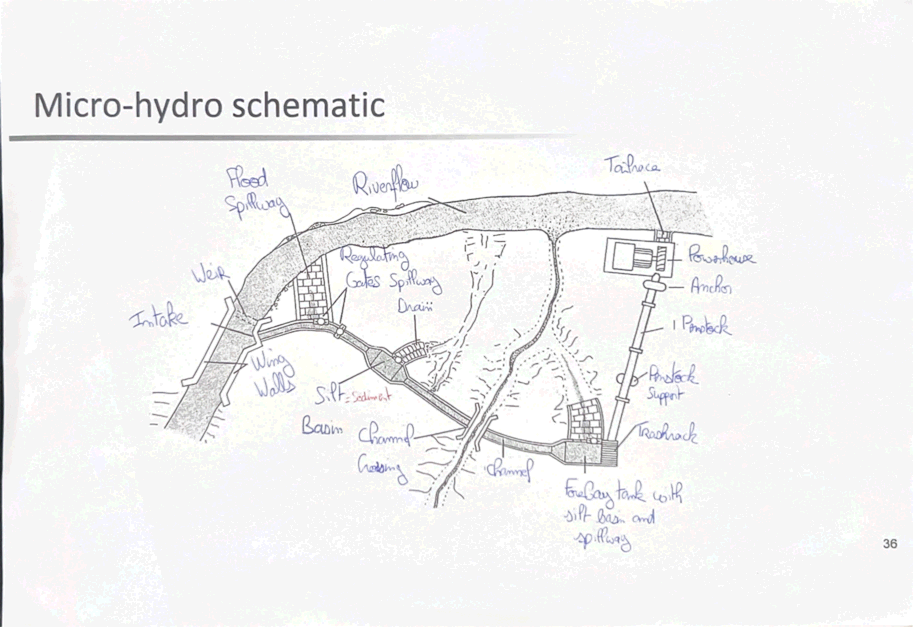 Micro-hydro schematic
Tailrace
Flood
Spillway
Riverflow
Regulating
Gates Spillway
Drain
Powerhouse
Weir
Anchor
Intake
Penstock
Wing
Walls
Penstock
Support
Silt = Sediment
Basin
Channel
Crossing
Trashrack
Channel
ForeBay tank with
silt basin and
spillway
36